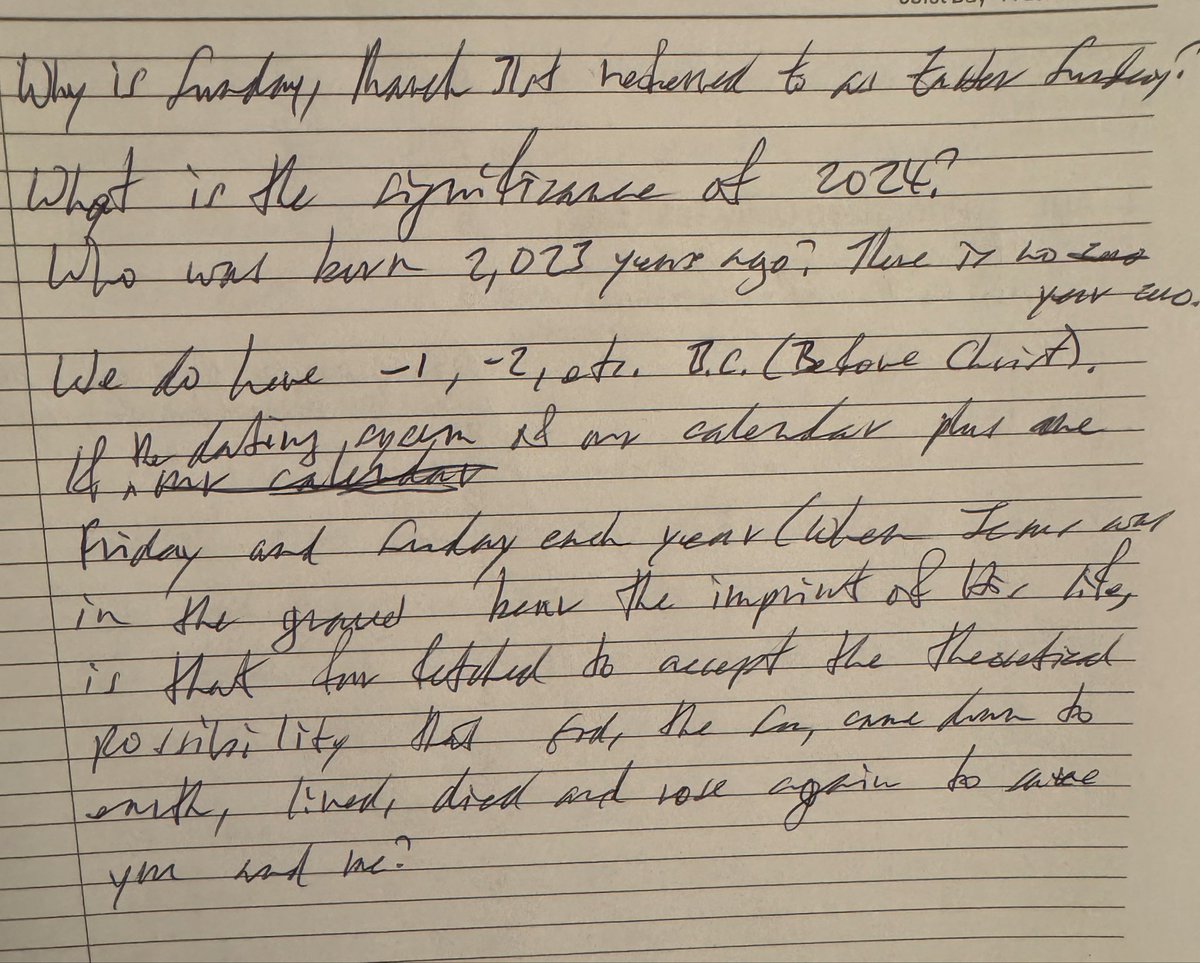 Why is Sunday, March 31st referred to as Easter Sunday?
What is the significance of 2024?
Who was born 2,023 years ago? There is no zero
year zero.
We do have -1, -2, etc. B.C. (Before Christ).
If the dating system of our calendar plus one
our calendar
Friday and Sunday each year (when Jesus was
in the grave) bear the imprint of His life,
is that far fetched to accept the theoretical
possibility that God, the Son, came down to
earth, lived, died and rose again to save
you and me?